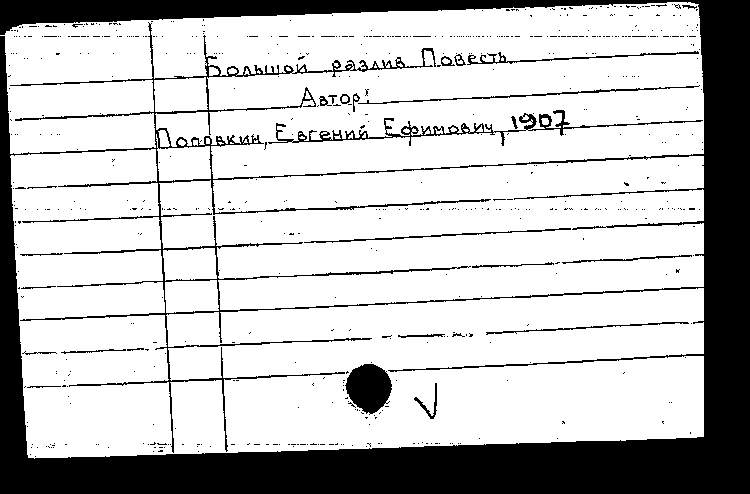 Большой разлив Повесть.
Автор:
Поповкин, Евгений Ефимович, 1907